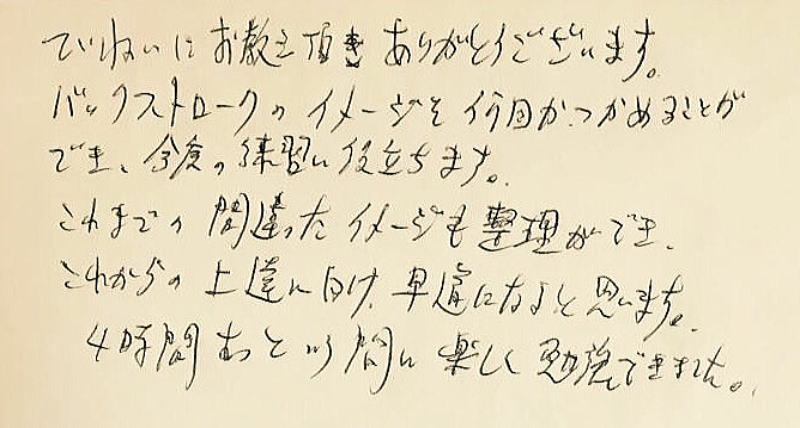 ていねいにお教え頂きありがとうございます。
バックストロークのイメージを何回かつかめることが
でき、今後の練習に役立ちます。
これまでの間違ったイメージも整理ができ、
これからの上達に向け、早道になると思います。
4時間あっという間に楽しく勉強できました。